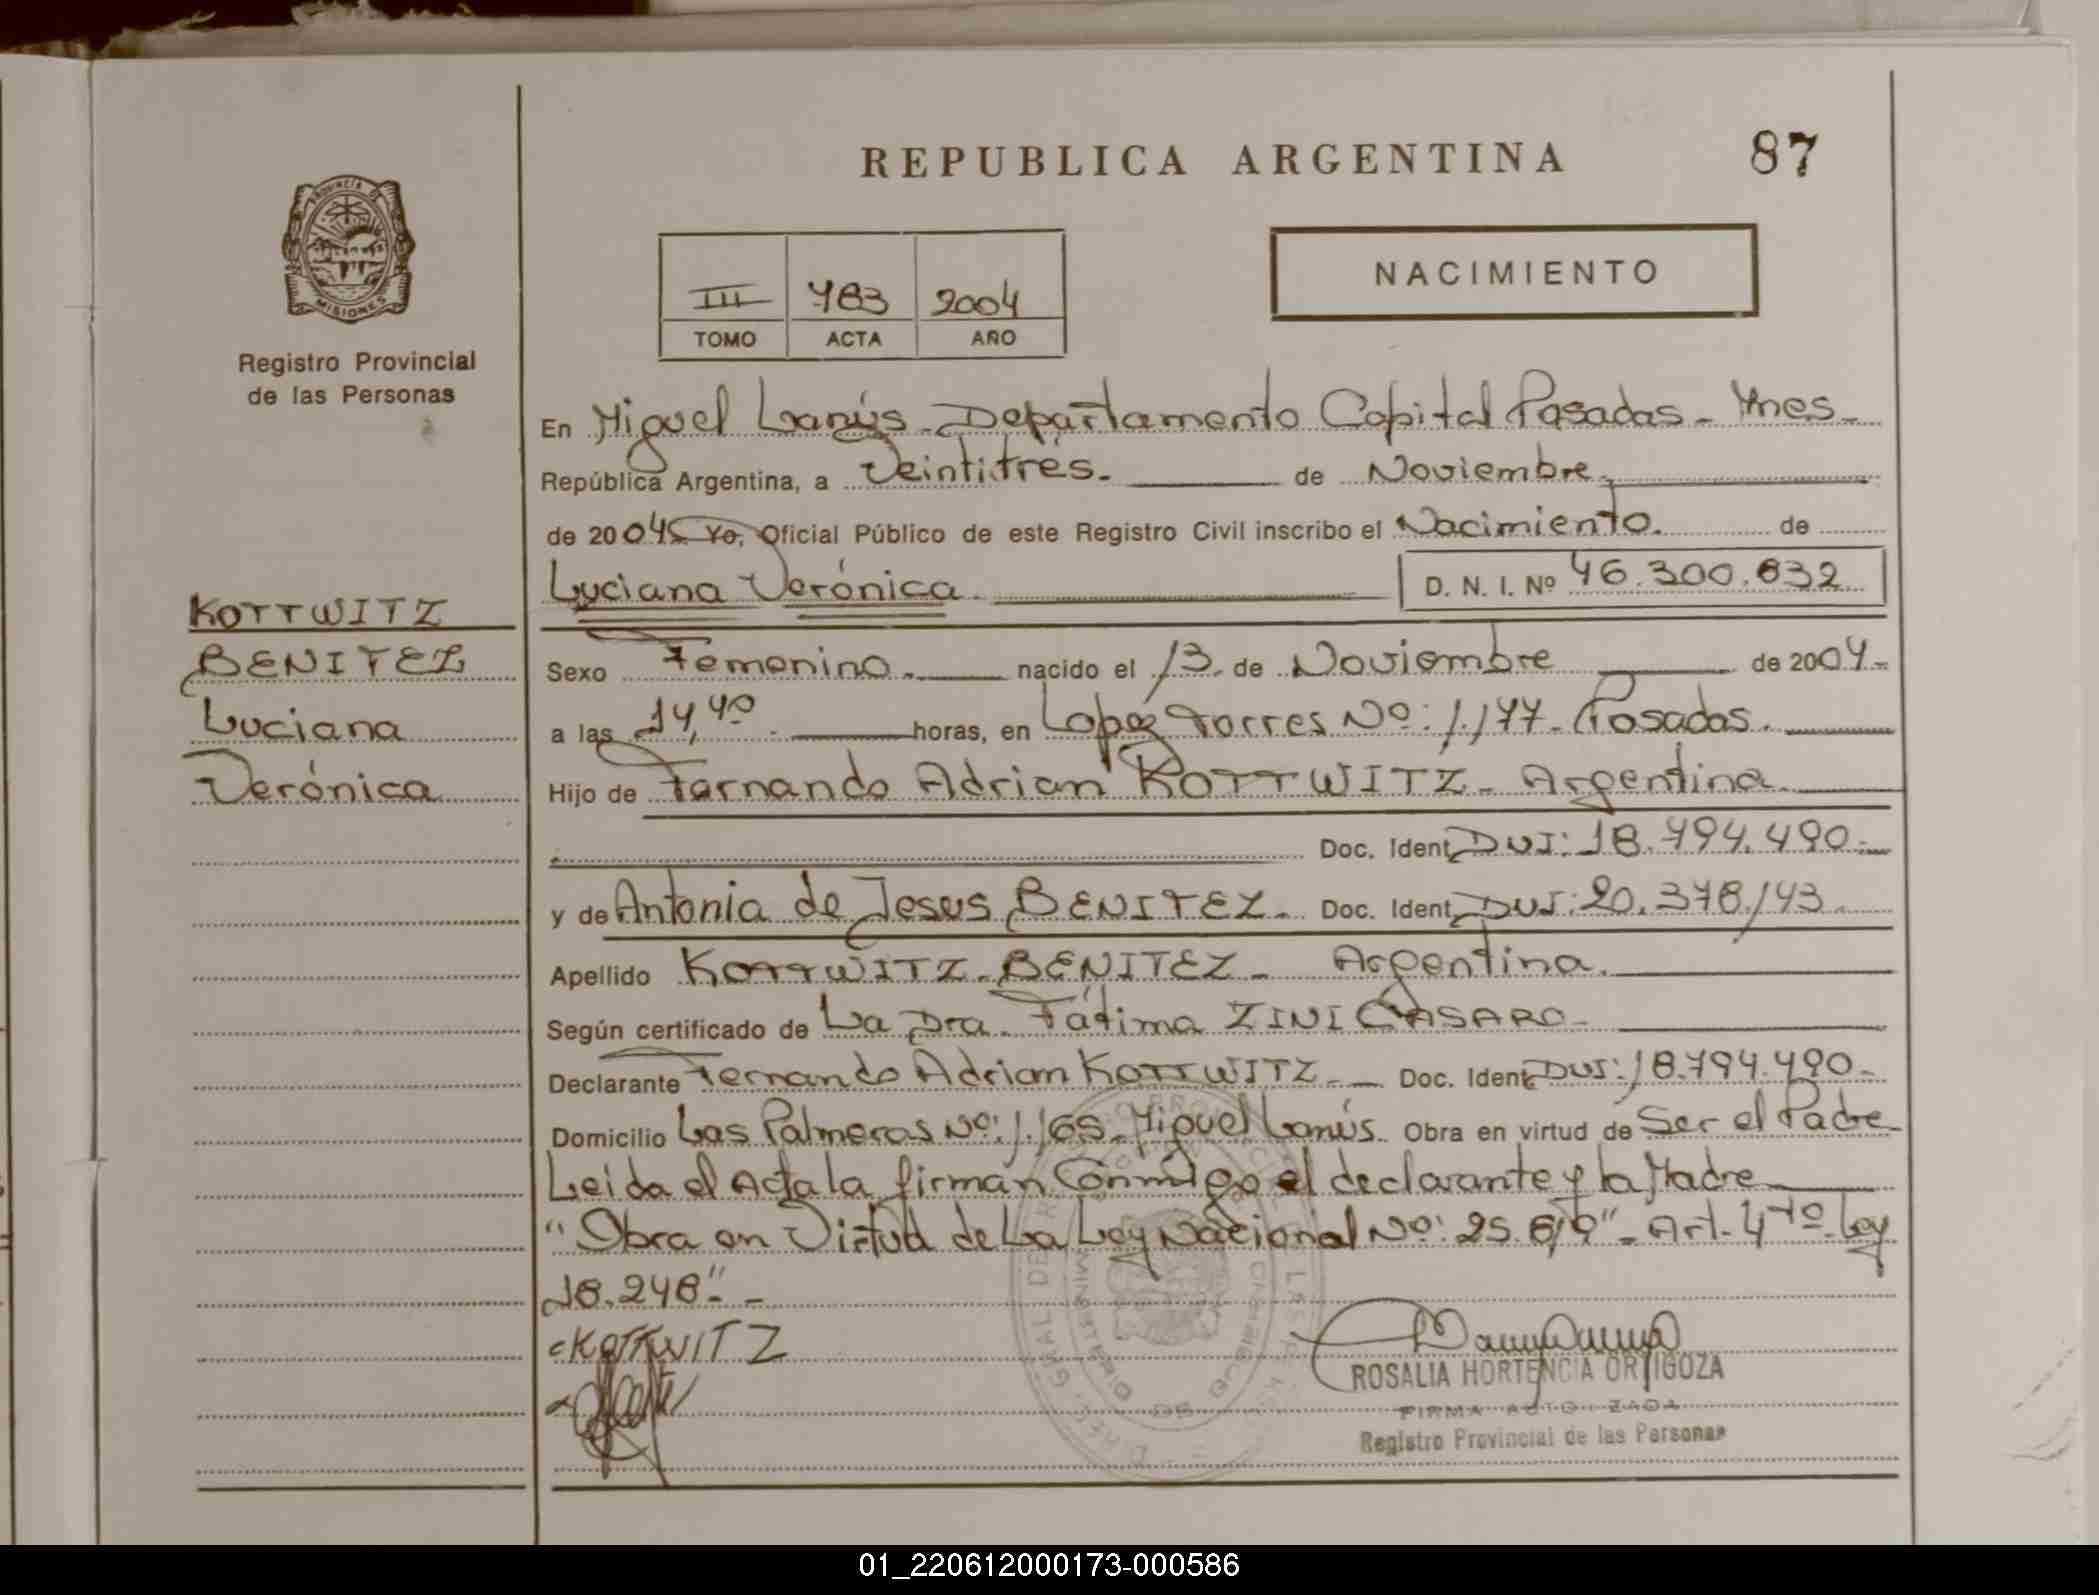 REPUBLICA ARGENTINA
87
PROVINCIA DE
MISIONES
Registro Provincial
de las Personas
III 783 2004
TOMO ACTA AÑO
NACIMIENTO
En Miguel Lanús - Departamento Capital Posadas - Mnes -
República Argentina, a Veintitrés. de Noviembre.
de 2004. Yo, Oficial Público de este Registro Civil inscribo el Nacimiento. de
Luciana Verónica.
D. N. I. Nº 46.300.632
KOTTWITZ
BENITEZ
Luciana
Verónica
Sexo Femenino. nacido el 13. de Noviembre de 2004.-
a las 14,40 horas, en Lopez Torres Nº: 1.177. Posadas.
Hijo de Fernando Adrian KOTTWITZ - Argentina.
Doc. Ident. DNI: 18.794.490.-
y de Antonia de Jesus BENITEZ. Doc. Ident. DNI: 20.378.143.
Apellido KOTTWITZ - BENITEZ - Argentina.
Según certificado de La Dra. Fátima ZINI CASARO -
Declarante Fernando Adrian KOTTWITZ. Doc. Ident. DNI: 18.794.490.-
Domicilio Las Palmeras Nº: 1.165. Miguel Lanús. Obra en virtud de Ser el Padre
Leida el Acta la firman Conmigo el declarante y la Madre
"Obra en Virtud de La Ley Nacional Nº: 25.819" - Art. 4to Ley
18.248" -
KOTTWITZ
ROSALIA HORTENCIA ORTIGOZA
FIRMA AUTORIZADA
Registro Provincial de las Personas
01_220612000173-000586